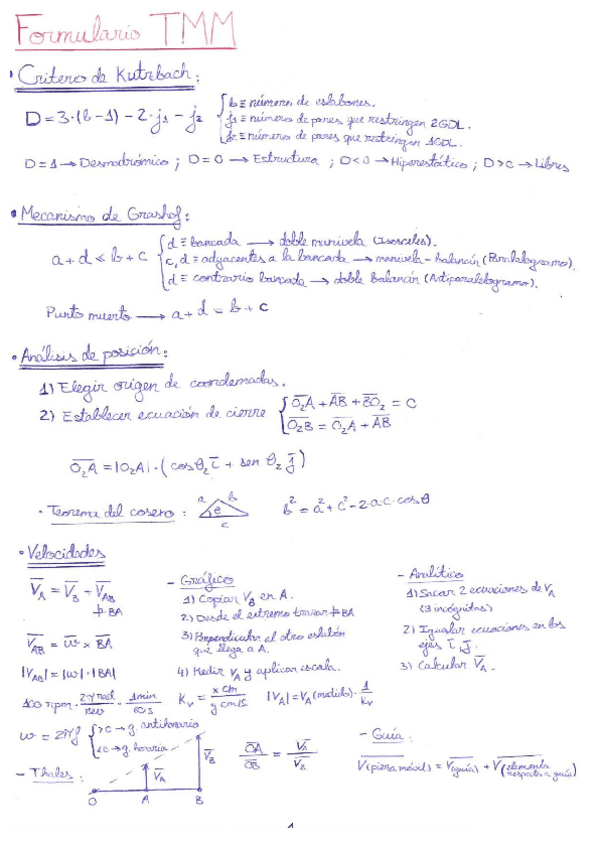 Formulario TMM
· Criterio de Kutzbach:
D = 3·(b-1) - 2·j₁ - j₂ { b ≡ número de eslabones.
j₁ ≡ número de pares que restringen 2GDL.
j₂ ≡ número de pares que restringen 1GDL.
D=1 → Desmodrómico ; D=0 → Estructura ; D<0 → Hiperestático ; D>0 → Libres
· Mecanismo de Grashof:
a+d < b+c { d ≡ bancada → doble manivela (Isósceles).
c, d ≡ adyacentes a la bancada → manivela-balancín (Paralelogramo).
d ≡ contrario bancada → doble balancín (Antiparalelogramo).
Punto muerto → a+d = b+c
· Análisis de posición:
1) Elegir origen de coordenadas.
2) Establecer ecuación de cierre { O₂A + AB + BO₂ = 0
O₂B = O₂A + AB
O₂A = |O₂A|·(cosθ₂ i + sen θ₂ j)
· Teorema del coseno: a b θ c b² = a² + c² - 2·a·c·cosθ
· Velocidades
V_A = V_B + V_AB
⊥ BA
V_AB = w × BA
|V_AB| = |w|·|BA|
100 rpm · 2π rad/rev · 1min/60s
w = 2πf { >0 → g. antihorario
<0 → g. horario
- Gráfico
1) Copiar V_B en A.
2) Desde el extremo trazar ⊥ BA
3) Perpendicular al otro eslabón
que llega a A.
4) Medir V_A y aplicar escala.
K_v = x cm / y cm/s |V_A| = V_A (medido) · 1/K_v
- Analítico
1) Sacar 2 ecuaciones de V_A
(3 incógnitas)
2) Igualar ecuaciones en los
ejes i, j.
3) Calcular V_A.
- Thales: O A B V_A V_B
OA/OB = V_A/V_B
- Guía:
V(pieza móvil) = V(guía) + V(elemento respecto a guía)
1